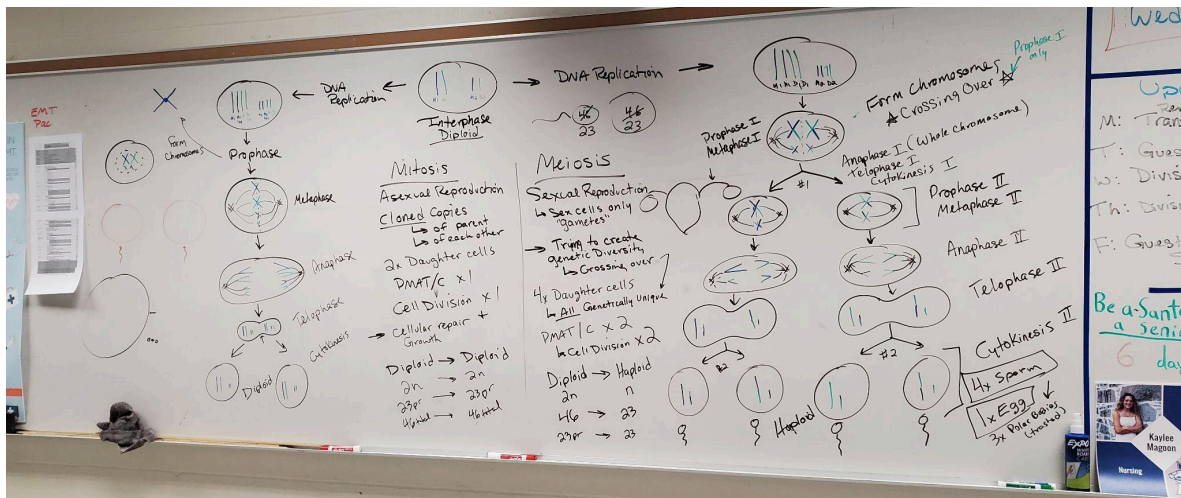 EMT
Pac
Form
Chromosomes
DNA
Replication
Interphase
Diploid
DNA Replication
46
23
46
23
Prophase
Metaphase
Anaphase
Telophase
Cytokinesis
Diploid
Mitosis
Asexual Reproduction
Cloned Copies
↳ of parent
↳ of each other
2x Daughter cells
PMAT/C x 1
Cell Division x 1
→ Cellular repair +
Growth
Diploid → Diploid
2n → 2n
23pr → 23pr
46total → 46total
Meiosis
Sexual Reproduction
↳ Sex cells only
"gametes"
→ Trying to create
genetic Diversity
↳ Crossing over
4x Daughter cells
↳ All Genetically Unique
PMAT/C x 2
↳ Cell Division x 2
Diploid → Haploid
2n n
46 → 23
23pr → 23
Prophase I
Metaphase I
Form Chromosomes
Crossing Over
Prophase I
only
Anaphase I (Whole chromosome)
Telophase I
Cytokinesis I
#1
Prophase II
Metaphase II
Anaphase II
Telophase II
#2
#2
Cytokinesis II
4x Sperm
1x Egg
3x Polar Bodies
(trashed)
Haploid
Wed
M: Tran
T: Gues
W: Divis
Th: Divis
F: Guest
Be a-Sant
a seni
6 day
EXPO
Kaylee
Magoon
Nursing